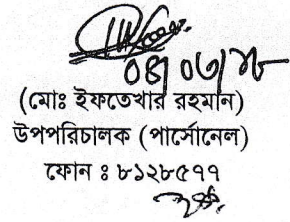 ০৪/০৩/১৮
(মোঃ ইফতেখার রহমান)
উপপরিচালক (পার্সোনেল)
ফোন ঃ ৮১২৮৫৭৭